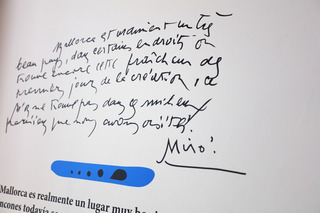 Mallorca est vraiment un très
beau pays, dans certains endroits on
trouve encore cette fraîcheur des
premiers jours de la création, ce
que nous avons visités.
Miró.
Mallorca es realmente un lugar muy
incones todavía